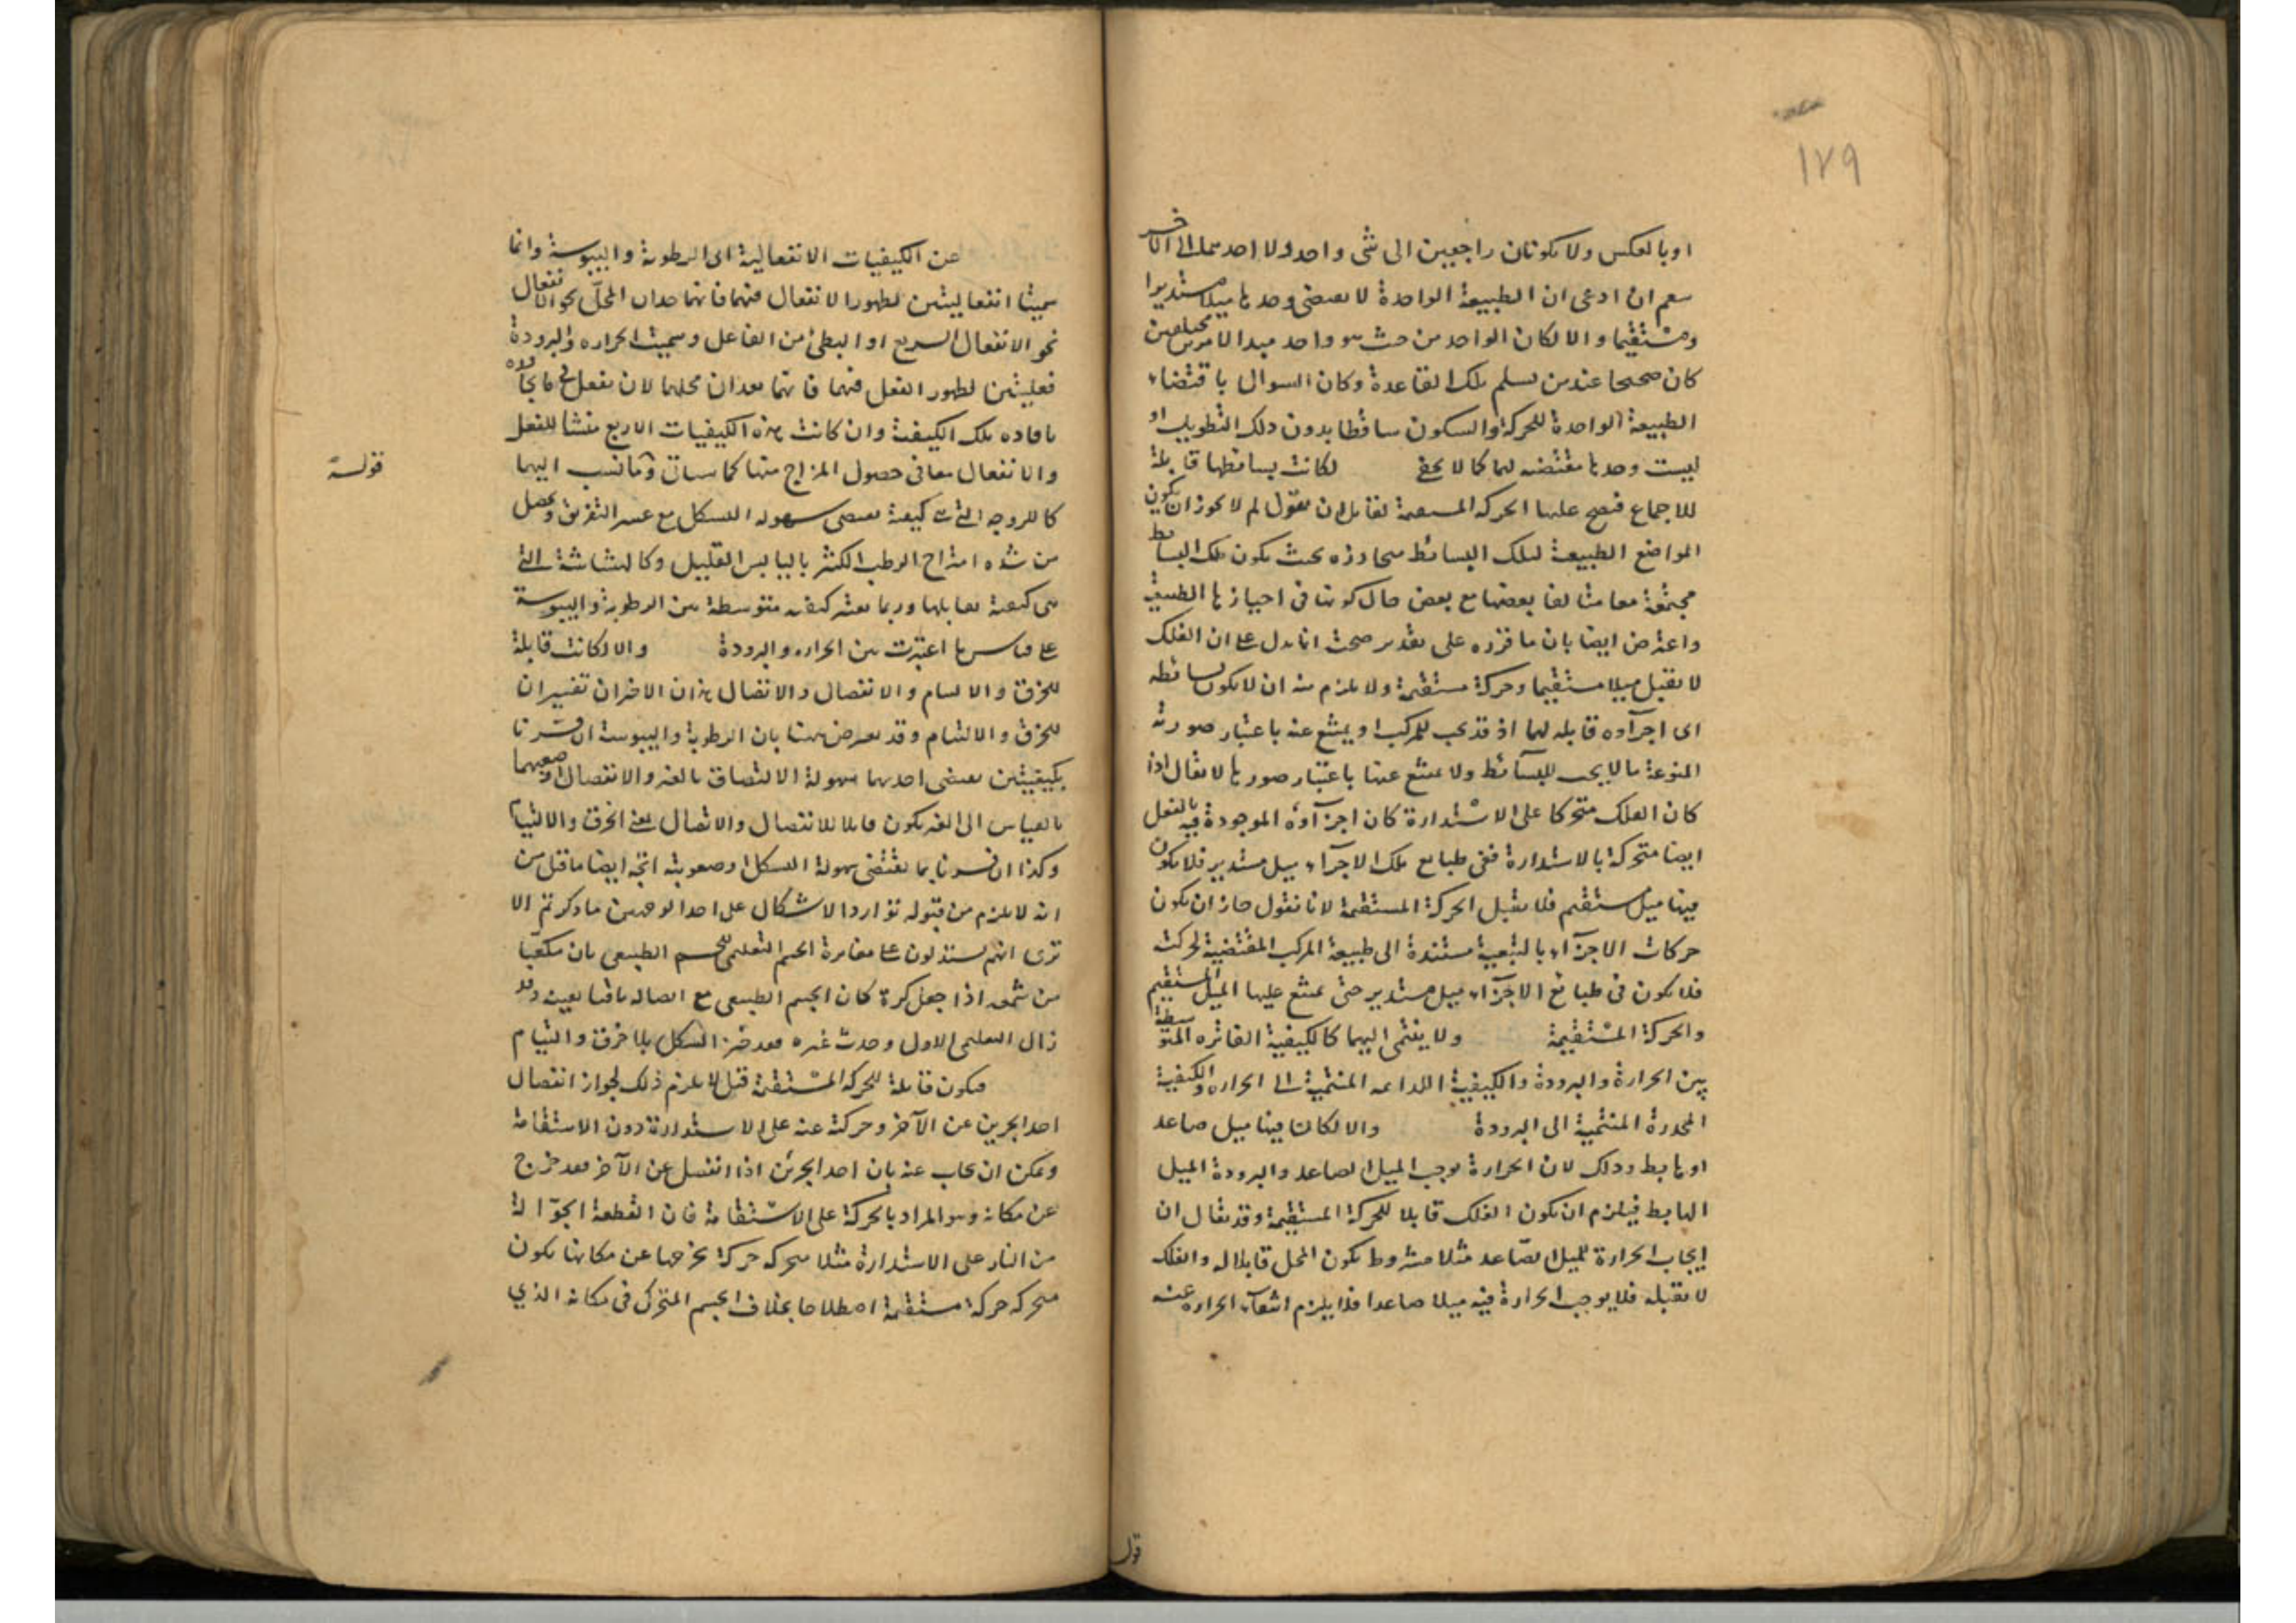 ١٧٩
او بالعكس ولا يكونان راجعين الى شئ واحد ولا احدهما الى الآخر
نعم ان ادعى ان الطبيعة الواحدة لا تقتضى وحدها ميلا مستديرا
ومستقيما والا لكان الواحد من حيث هو واحد مبدا لامرين مختلفين
كان صحيحا عند من يسلم تلك القاعدة وكان السوال باقتضاء
الطبيعة الواحدة للحركة والسكون ساقطا بدون ذلك التطويل او
ليست وحدها مقتضية لهما كما لا يخفى لكانت بسائطها قابلة
للاجماع فتصح عليها الحركة المستقيمة لقائل ان يقول لم لا يجوز ان يكون
المواضع الطبيعية لتلك البسائط متجاورة بحيث يكون تلك البسائط
مجتمعة معا متالفا بعضها مع بعض حال كونها فى احيازها الطبيعية
واعترض ايضا بان ما قرره على تقدير صحته انما يدل على ان الفلك
لا يقبل ميلا مستقيما وحركة مستقيمة ولا يلزم منه ان لا يكون بسائطه
اى اجزاؤه قابلة لهما اذ قد يجب للمركب او يمتنع عنه باعتبار صورته
المنوعة ما لا يجب للبسائط ولا يمتنع عنها باعتبار صورها لا يقال اذا
كان الفلك متحركا على الاستدارة كان اجزاؤه الموجودة فيه بالفعل
ايضا متحركة بالاستدارة ففى طبايع تلك الاجزاء ميل مستدير فلا يكون
فيها ميل مستقيم فلا يقبل الحركة المستقيمة لانا نقول جاز ان يكون
حركات الاجزاء بالتبعية مستندة الى طبيعة المركب المقتضية لحركته
فلا يكون فى طبائع الاجزاء ميل مستدير حتى يمتنع عليها الميل المستقيم
والحركة المستقيمة ولا ينتمى اليهما كالكيفية الفاترة المتوسطة
بين الحرارة والبرودة والكيفية اللذاعة المنتمية الى الحرارة والكيفية
المخدرة المنتمية الى البرودة والا لكان فيها ميل صاعد
او هابط وذلك لان الحرارة توجب الميل الصاعد والبرودة الميل
الهابط فيلزم ان يكون الفلك قابلا للحركة المستقيمة وقد يقال ان
ايجاب الحرارة للميل الصاعد مثلا مشروط بكون المحل قابلا له والفلك
لا يقبله فلا يوجب الحرارة فيه ميلا صاعدا فلا يلزم انتفاء الحرارة عنه
قول
عن الكيفيات الانفعالية اى الرطوبة واليبوسة وانما
سميتا انفعاليتين لظهور الانفعال فيهما فانهما تعدان المحل نحو الانفعال
نحو الانفعال السريع او البطئ من الفاعل وسميت الحرارة والبرودة
فعليتين لظهور الفعل فيهما فانهما تعدان محلهما لان يفعل فى ما يجاوره
بافادة تلك الكيفية وان كانت هذه الكيفيات الاربع منشا للفعل
والانفعال معا فى حصول المزاج منها كما سياتى وما نسب اليهما
قوله
كاللزوجة التى هى كيفية تقتضى سهولة التشكل مع عسر التفريق ويحصل
من شدة امتزاج الرطب الكثير باليابس القليل وكالهشاشة التى
هى كيفية تقابلها وربما يعتبر كيفية متوسطة بين الرطوبة واليبوسة
على قياس ما اعتبرت بين الحرارة والبرودة والا لكانت قابلة
للخرق والالتيام والانفصال والاتصال هذان الاخيران تفسيران
للخرق والالتيام وقد يعترض ههنا بان الرطوبة واليبوسة ان فسرتا
بكيفيتين تقتضى احديهما سهولة الالتصاق بالغير والانفصال او صعوبتهما
بالقياس الى الغير يكون قابلا للانفصال والاتصال لمعنى الخرق والالتيام
وكذا ان فسرتا بما يقتضى سهولة التشكل وصعوبته اتجه ايضا ما قيل من
انه لا يلزم من قبوله توارد الاشكال على احد الوجهين ما ذكرتم الا
ترى انهم يستدلون على مغايرة الجسم التعليمى للجسم الطبيعى بان مكعبا
من شمعة اذا جعل كرة كان الجسم الطبيعى مع اتصاله باقيا بعينه وقد
زال التعليمى الاول وحدث غيره فقد تغير الشكل بلا خرق والتيام
فيكون قابلة للحركة المستقيمة قيل لا يلزم ذلك لجواز انفصال
احد الجزئين عن الآخر وحركته عنه على الاستدارة دون الاستقامة
ويمكن ان يجاب عنه بان احد الجزئين اذا انفصل عن الآخر فقد خرج
عن مكانه وهو المراد بالحركة على الاستقامة فان القطعة الجوالة
من النار على الاستدارة مثلا متحركة حركة تخرجها عن مكانها يكون
متحركة حركة مستقيمة اصطلاحا بخلاف الجسم المتحرك فى مكانه الذي